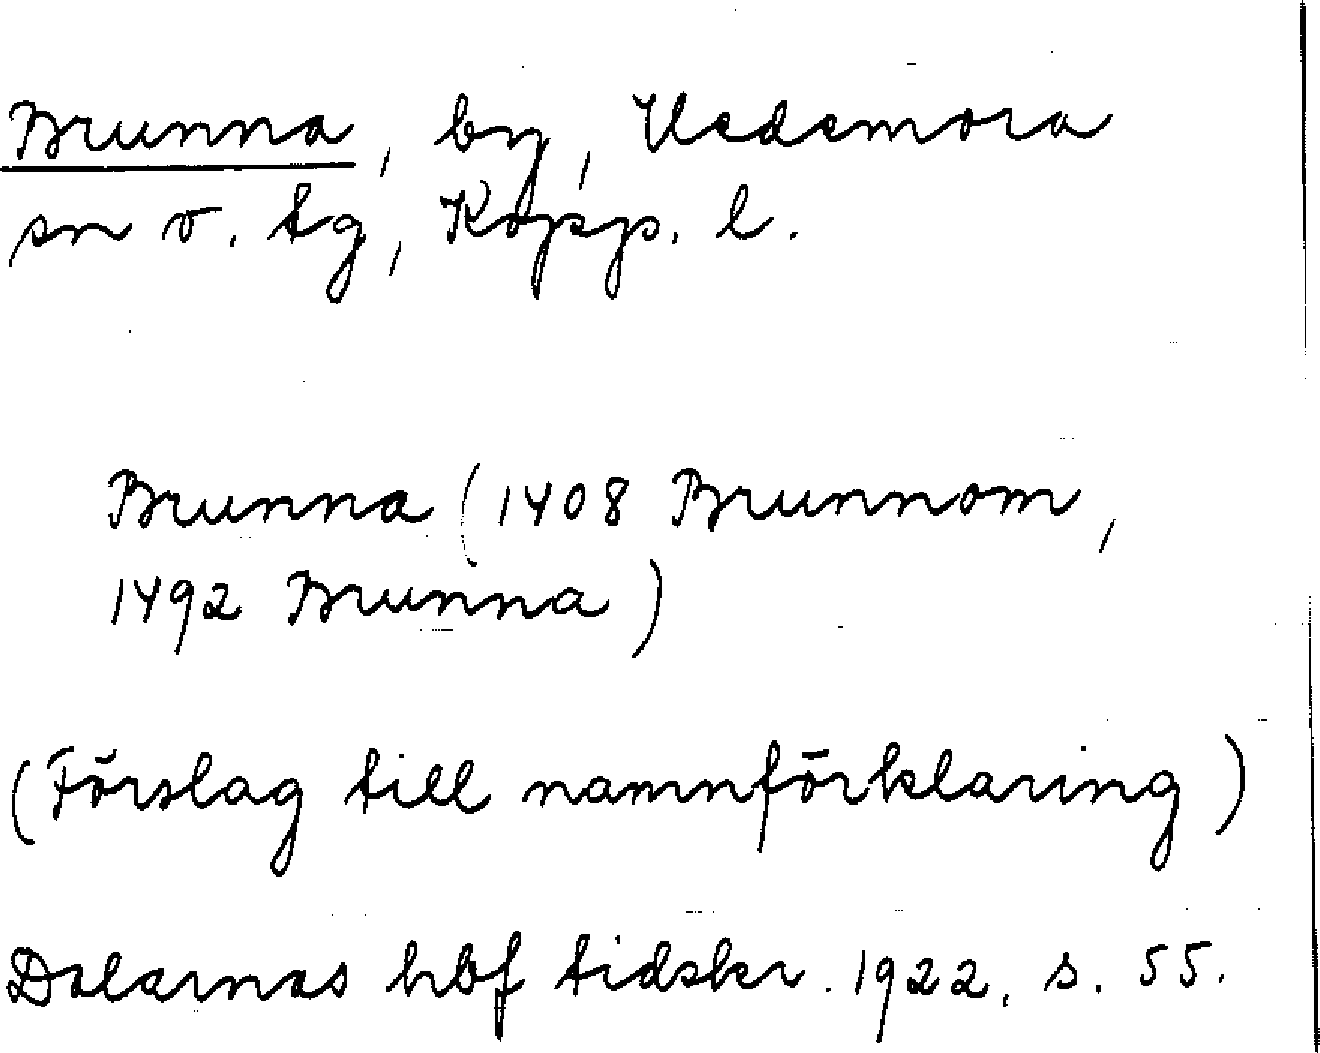 Brunna, by, Hedemora
sn o. tg, Kopp. l.
Brunna (1408 Brunnom,
1492 Brunna)
(Förslag till namnförklaring)
Dalarnas hbf tidskr. 1922, s. 55.